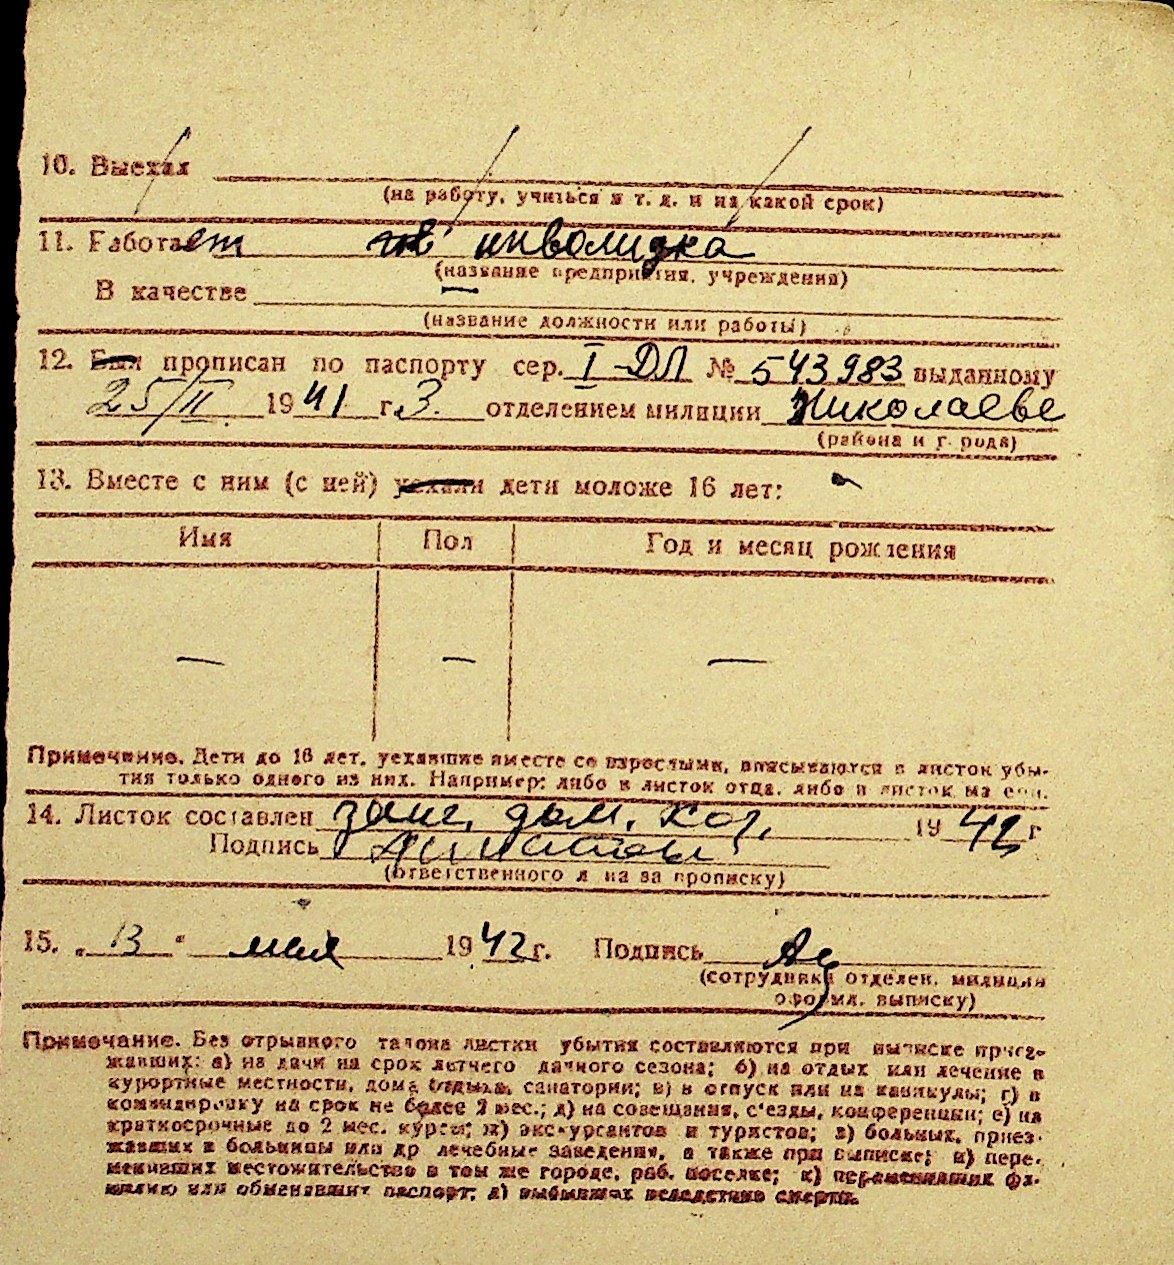 10. Выехал
(на работу, учиться и т. д. и на какой срок)
11. Работает инволидка
(название предприятия, учреждения)
В качестве —
(название должности или работы)
12. Был прописан по паспорту сер. I-ДЛ № 543983 выданному
25/II 1941 г. 3. отделением милиции Николаеве
(района и города)
13. Вместе с ним (с ней) уехали дети моложе 16 лет: -
Имя Пол Год и месяц рождения
— — —
Примечание. Дети до 16 лет, уехавшие вместе со взрослыми, вписываются в листок убы-
тия только одного из них. Например: либо в листок отца, либо в листок матери.
14. Листок составлен дом. 1942 г
Подпись
(ответственного лица за прописку)
15. „13“ мая 1942 г. Подпись
(сотрудника отделен. милиции
оформл. выписку)
Примечание. Без отрывного талона листки убытия составляются при выписке приез-
жавших: а) на дачи на срок летнего дачного сезона; б) на отдых или лечение в
курортные местности, дома отдыха, санатории; в) в отпуск или на каникулы; г) в
командировку на срок не более 2 мес.; д) на совещания, с'езды, конференции; е) на
краткосрочные до 2 мес. курсы; ж) экскурсантов и туристов; з) больных, приез-
жавших в больницы или др лечебные заведения, а также при выписке; и) пере-
менивших местожительство в том же городе, раб. поселке; к) переменивших фа-
милию или обменявших паспорт; л) выбывших вследствие смерти.